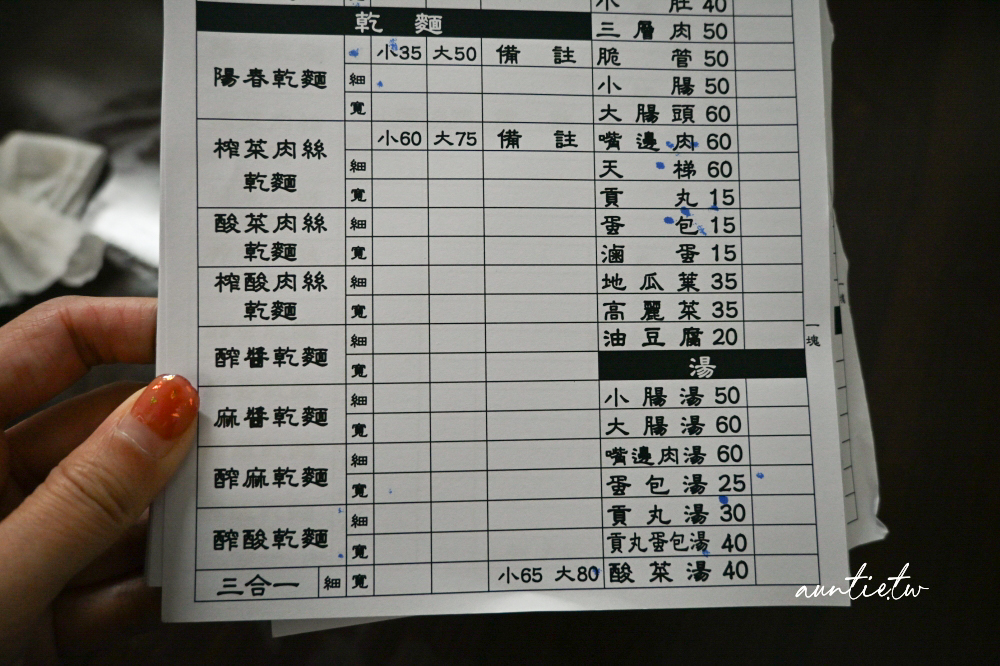 乾 麵
陽春乾麵
小35 大50 備 註
細
寬
榨菜肉絲
乾麵
小60 大75 備 註
細
寬
酸菜肉絲
乾麵
細
寬
榨酸肉絲
乾麵
細
寬
醡醬乾麵
細
寬
麻醬乾麵
細
寬
醡麻乾麵
細
寬
醡酸乾麵
細
寬
三合一 細 寬 小65 大80
小 肚 40
三層肉 50
脆 管 50
小 腸 50
大腸頭 60
嘴邊肉 60
天 梯 60
貢 丸 15
蛋 包 15
滷 蛋 15
地瓜葉 35
高麗菜 35
油豆腐 20
一塊
湯
小腸湯 50
大腸湯 60
嘴邊肉湯 60
蛋包湯 25
貢丸湯 30
貢丸蛋包湯 40
酸菜湯 40
auntie.tw